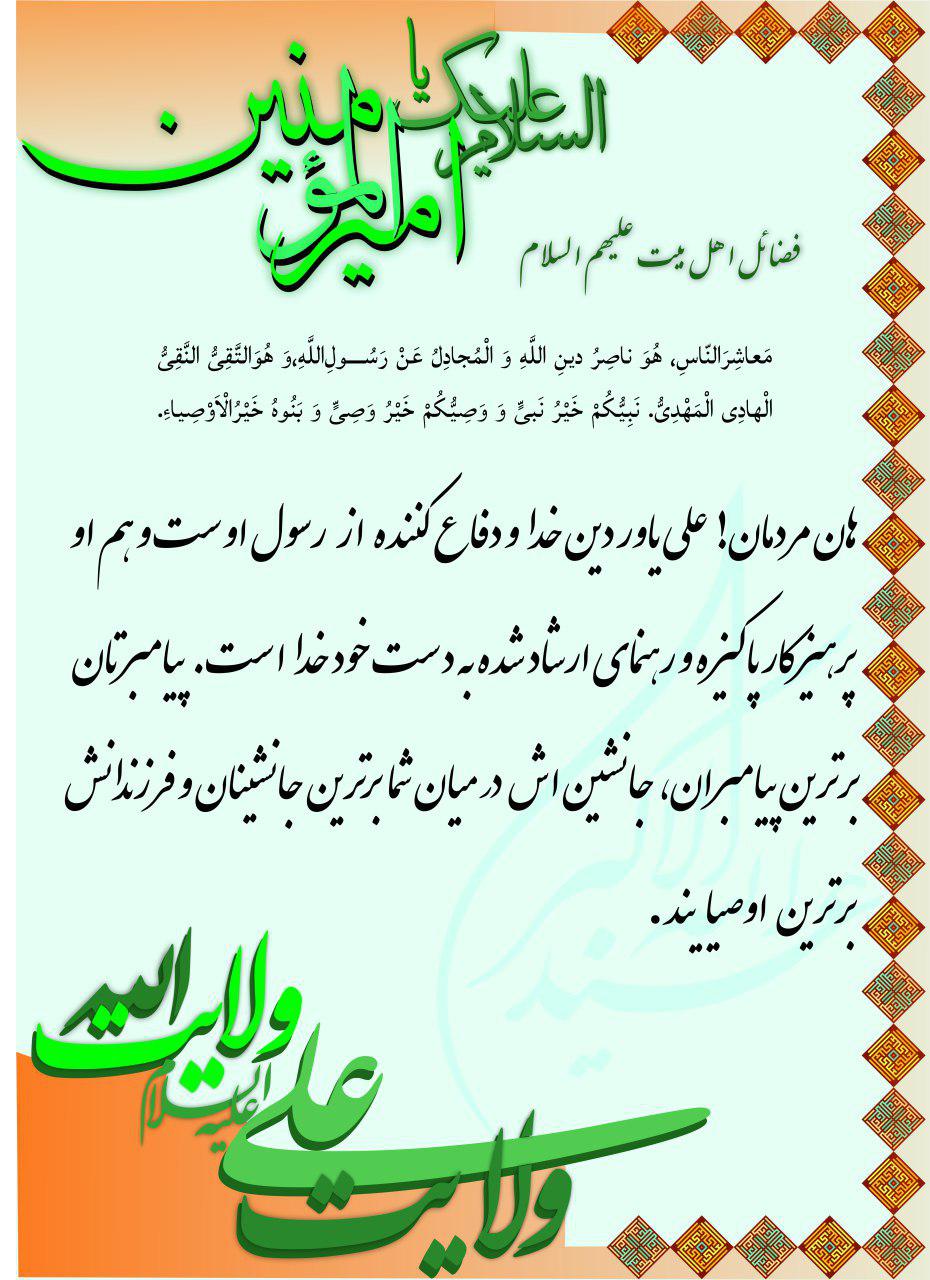 السلام علیک یا
امیرالمؤمنین
فضائل اهل بیت علیهم السلام
مَعاشِرَالنّاسِ، هُوَ ناصِرُ دینِ اللَّهِ وَ الْمُجادِلُ عَنْ رَسُـــولِ‌اللَّهِ،وَ هُوَالتَّقِیُّ النَّقِیُّ
الْهادِی الْمَهْدِیُّ. نَبِیُّکُمْ خَیْرُ نَبیٍّ وَ وَصِیُّکُمْ خَیْرُ وَصِیٍّ وَ بَنُوهُ خَیْرُالْاَوْصِیاءِ.
هان مردمان! علی یاور دین خدا و دفاع کننده از رسول اوست و هم او
پرهیزکار پاکیزه و رهنمای ارشاد شده به دست خود خدا است. پیامبرتان
برترین پیامبران، جانشین اش در میان شما برترین جانشینان و فرزندانش
برترین اوصیایند.
ولایت الله
ولایت علی
علیه السلام